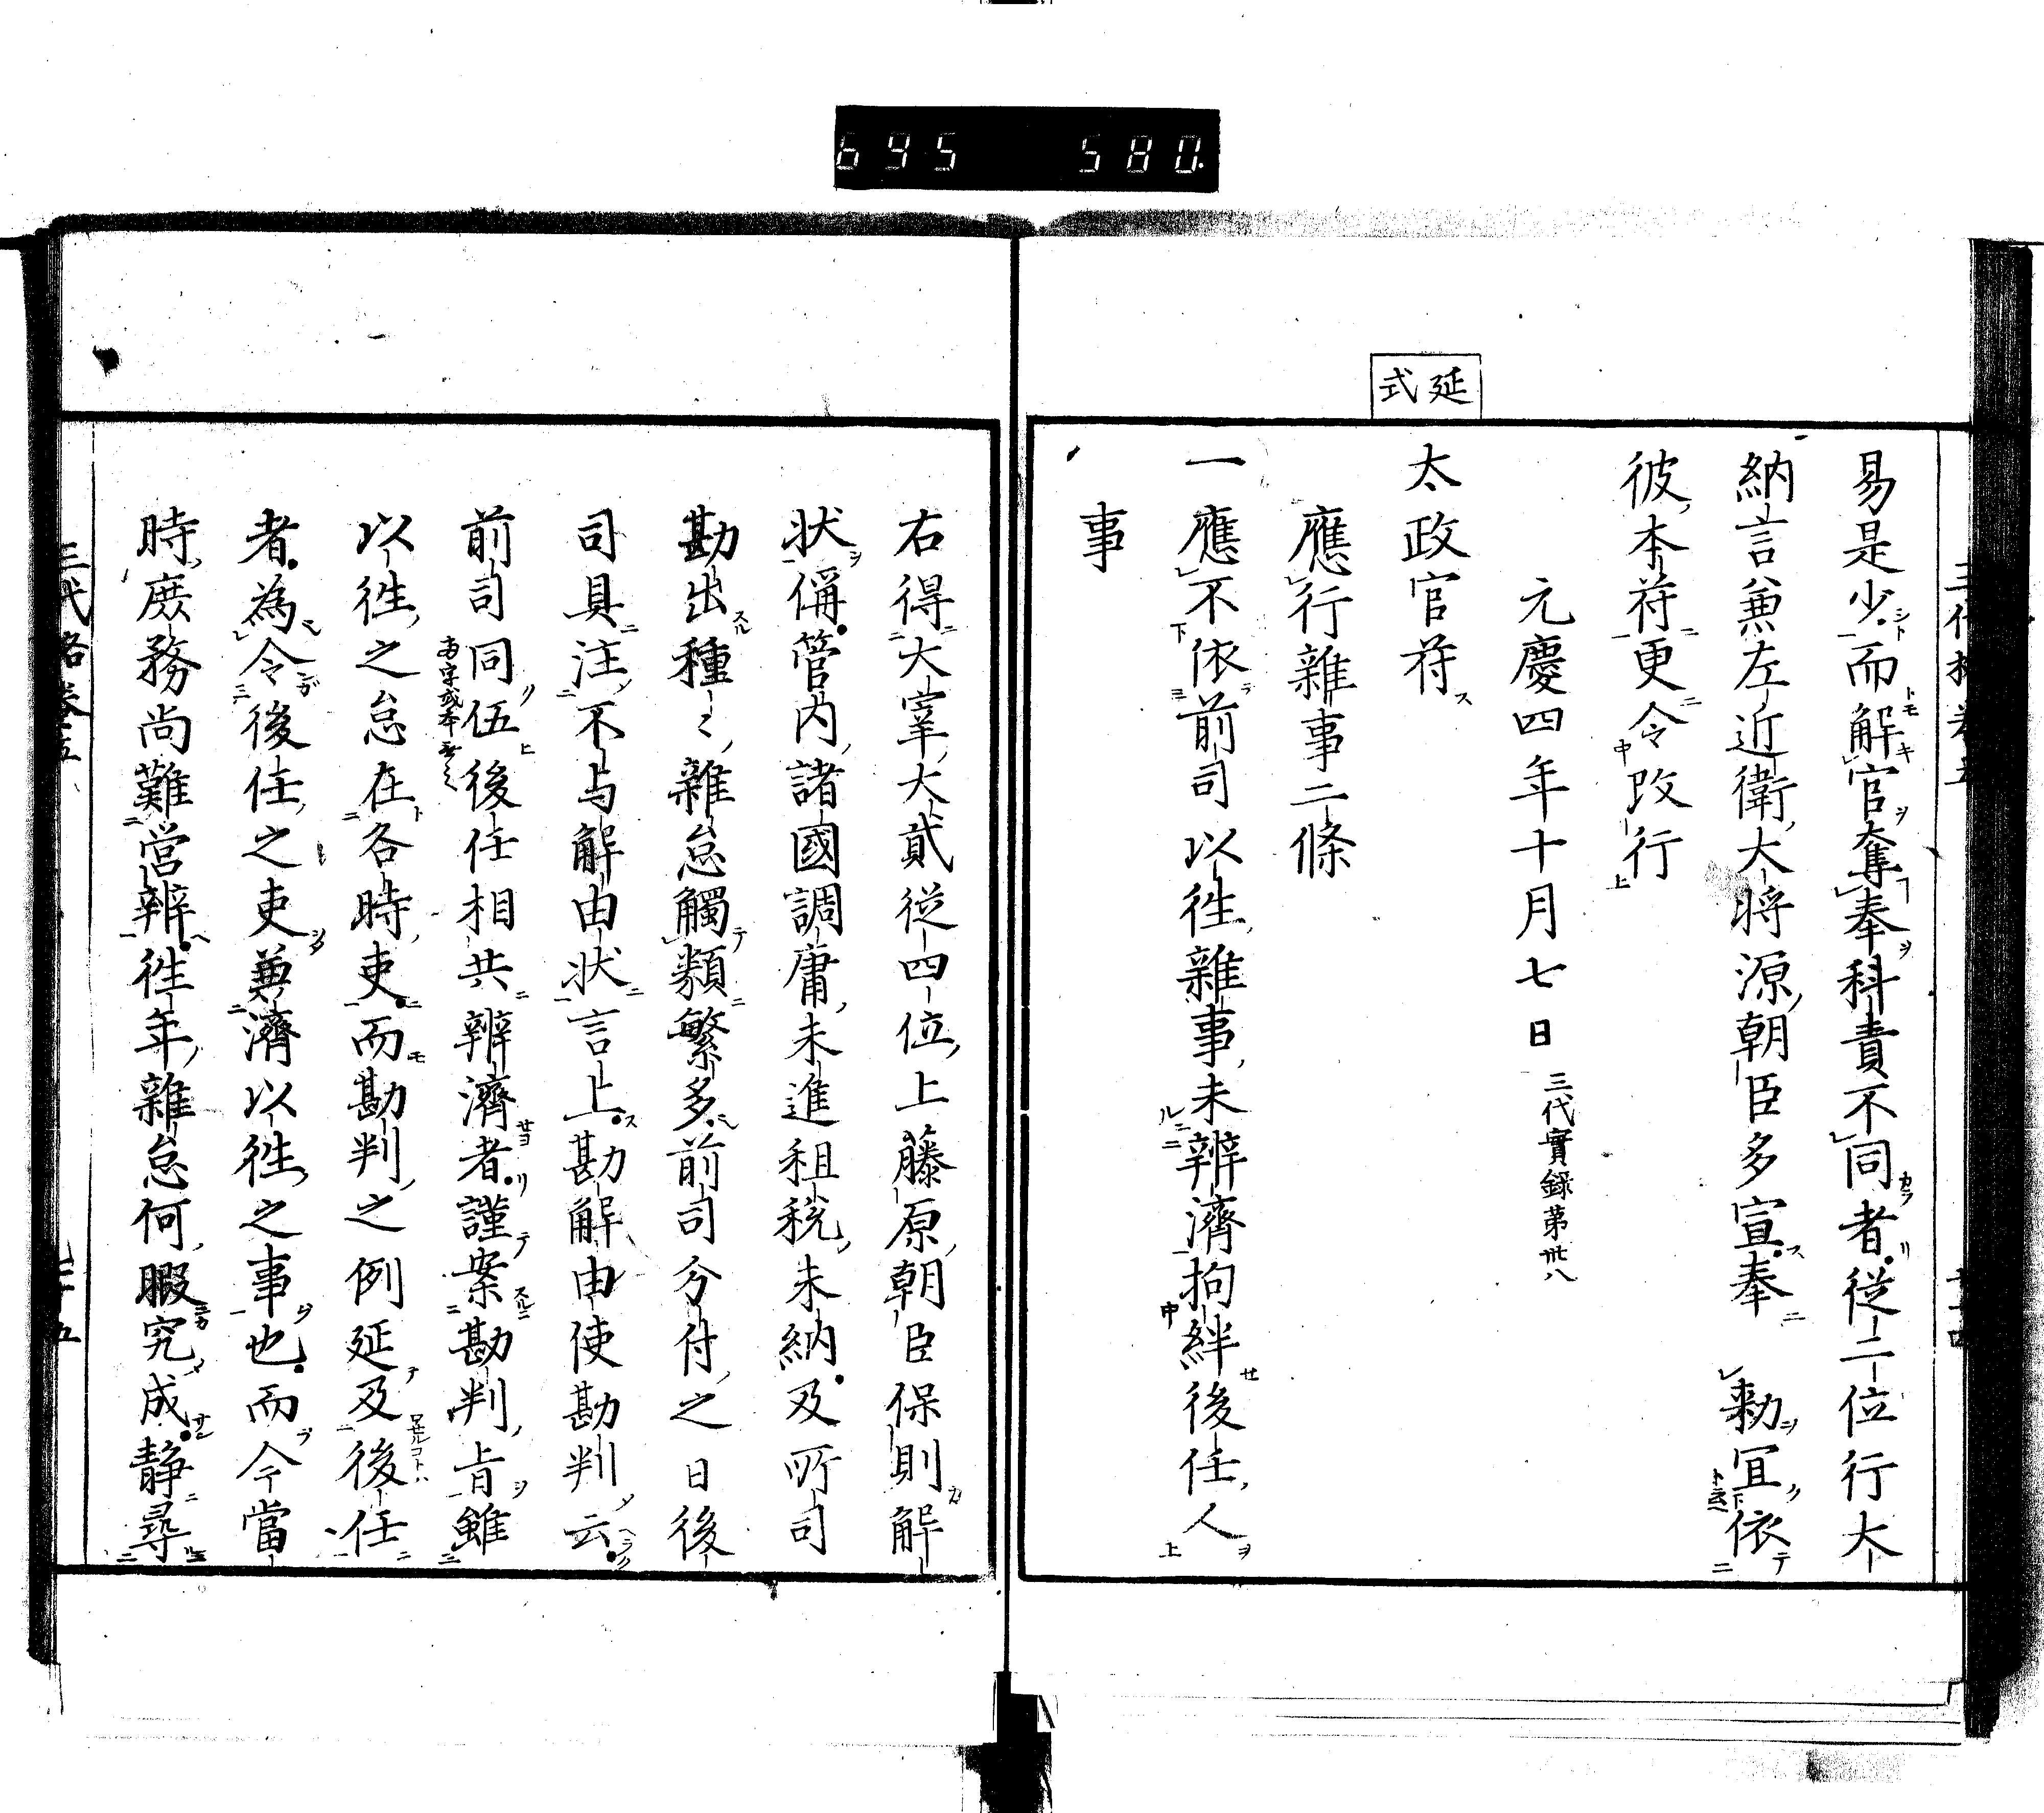 695 580.
延式
易是少而解官奪奉科責不同者従二位行大
納言兼左近衛大将源朝臣多宣奉　勅冝依
彼本符更令改行
元慶四年十月七日 三代實録第卅八
太政官符
應行雜事二條
一應不依前司以徃雜事未辨濟拘絆後任人
事
右得大宰大貳従四位上藤原朝臣保則解
状偁管内諸國調庸未進租税未納及所司
勘出種〻雜怠觸類繁多前司分付之日後
司具注不与解由状言上勘解由使勘判云
前司同伍後任相共辨濟者謹案勘判㫖雖
以徃之怠在各時吏而勘判之例延及後任
者為令後任之吏兼濟以徃之事也而今當
時庶務尚難営辨徃年雜怠何暇究成静尋
三代格巻五